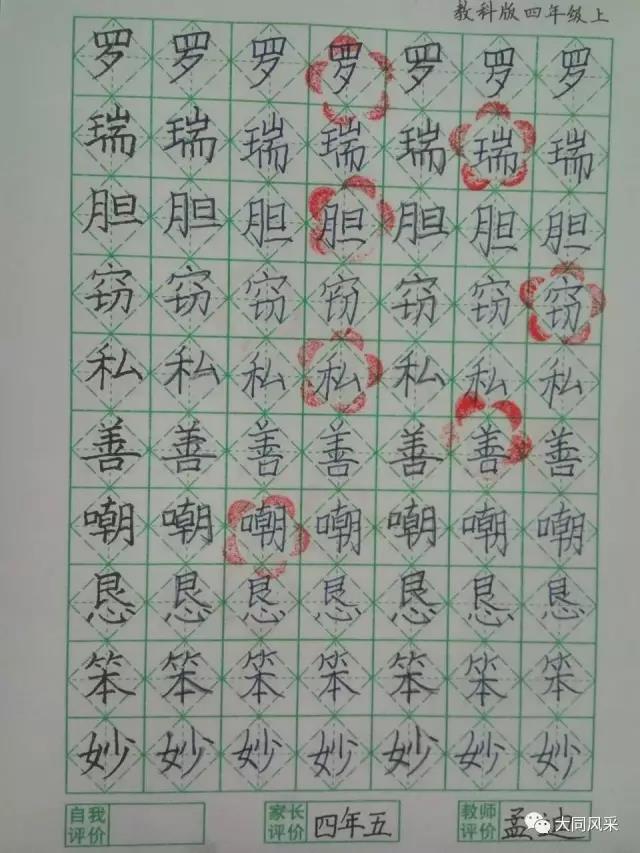 教科版四年级上
罗罗罗罗罗罗罗
瑞瑞瑞瑞瑞瑞瑞
胆胆胆胆胆胆胆
窃窃窃窃窃窃窃
私私私私私私私
善善善善善善善
嘲嘲嘲嘲嘲嘲嘲
恳恳恳恳恳恳恳
笨笨笨笨笨笨笨
妙妙妙妙妙妙妙
自我评价 家长评价 四年五 教师评价 孟
大同风采